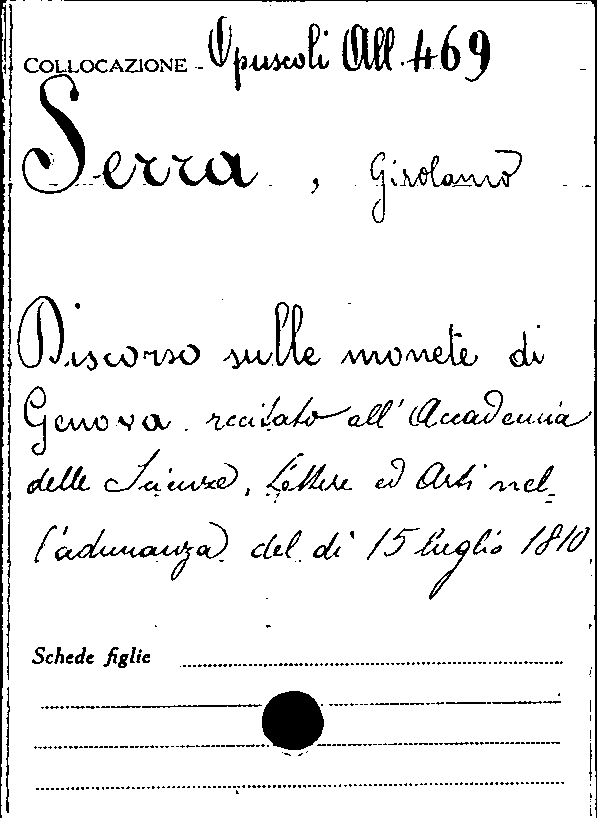 COLLOCAZIONE - Opuscoli All. 469
Serra, Girolamo
Discorso sulle monete di
Genova. recitato all'Accademia
delle Scienze, Lettere ed Arti nel=
l'adunanza del dì 15 luglio 1810
Schede figlie